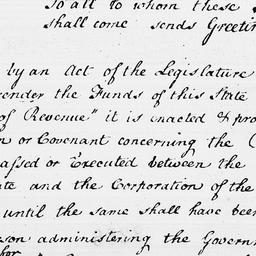 To all to whom these
shall come sends Greetin
by an Act of the Legislature
render the Funds of this State
of Revenue" it is enacted & pro
n or Covenant concerning the
assed or Executed between the
ate and the Corporation of the
until the same shall have been
son administering the Governm
for